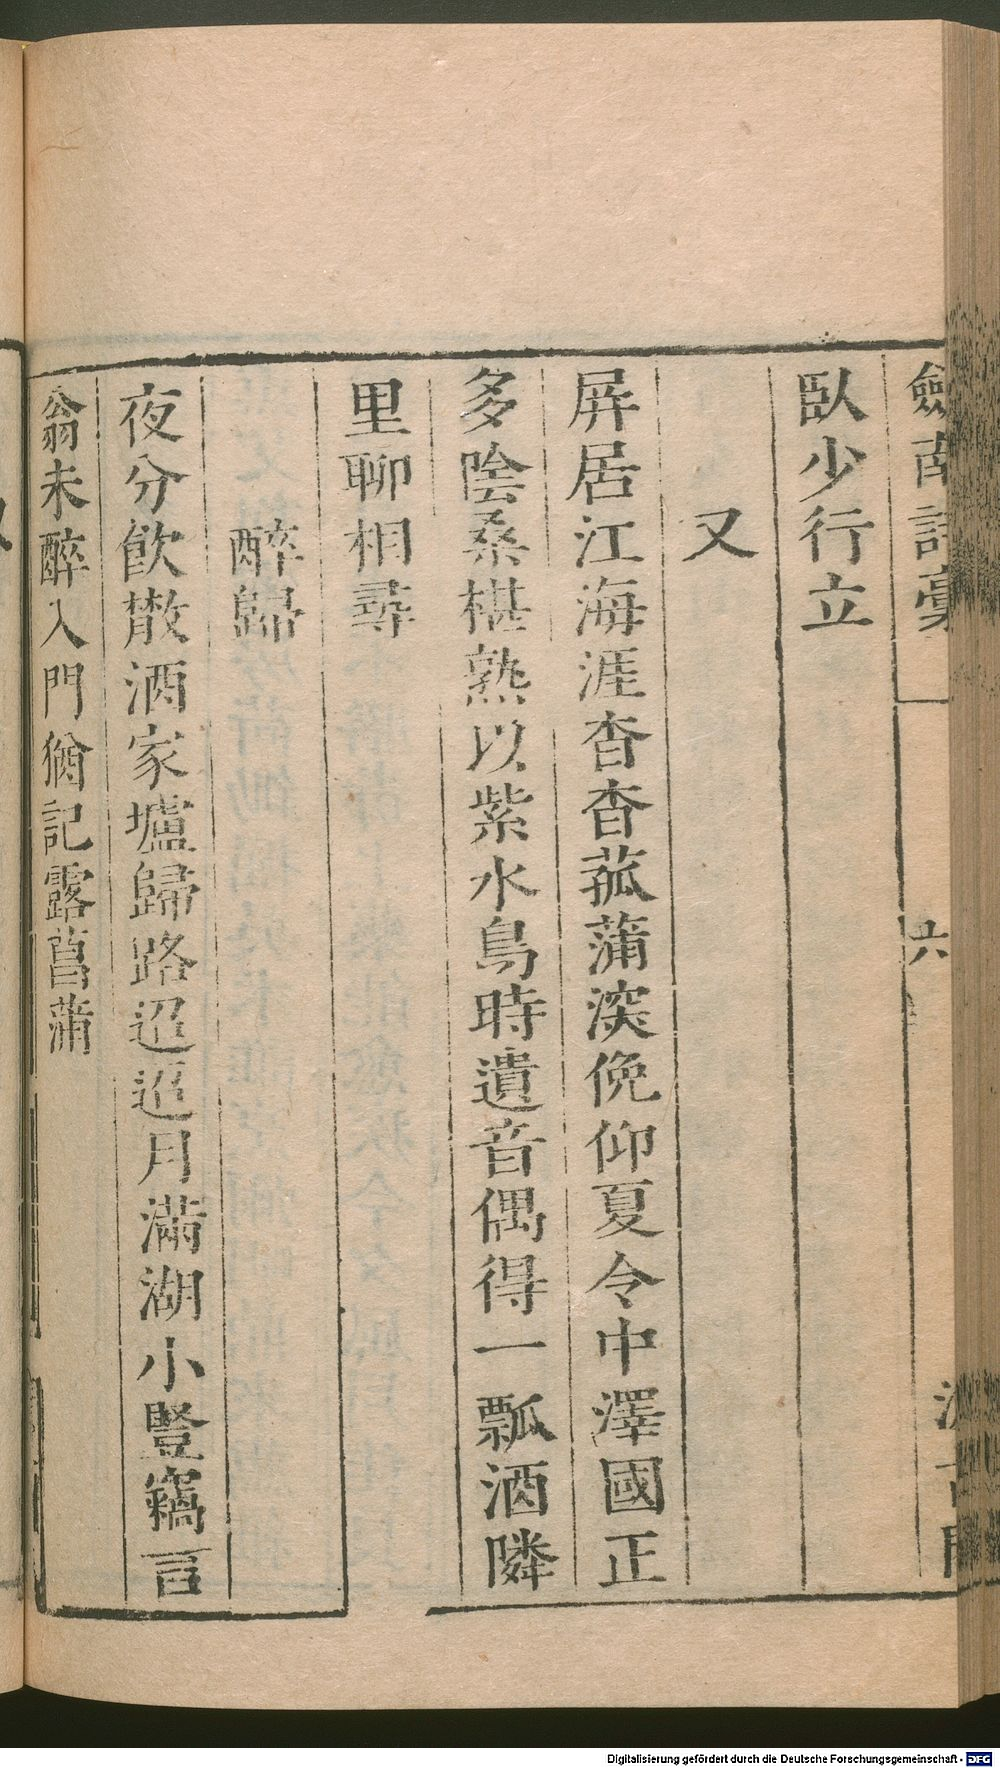 劍南詩稾 六 汲古閣
臥少行立
又
屏居江海涯杳杳菰蒲深俛仰夏令中澤國正
多陰桑椹熟以紫水鳥時遺音偶得一瓢酒隣
里聊相尋
醉歸
夜分飲散酒家壚歸路迢迢月滿湖小豎竊言
翁未醉入門猶記露菖蒲
Digitalisierung gefördert durch die Deutsche Forschungsgemeinschaft - DFG